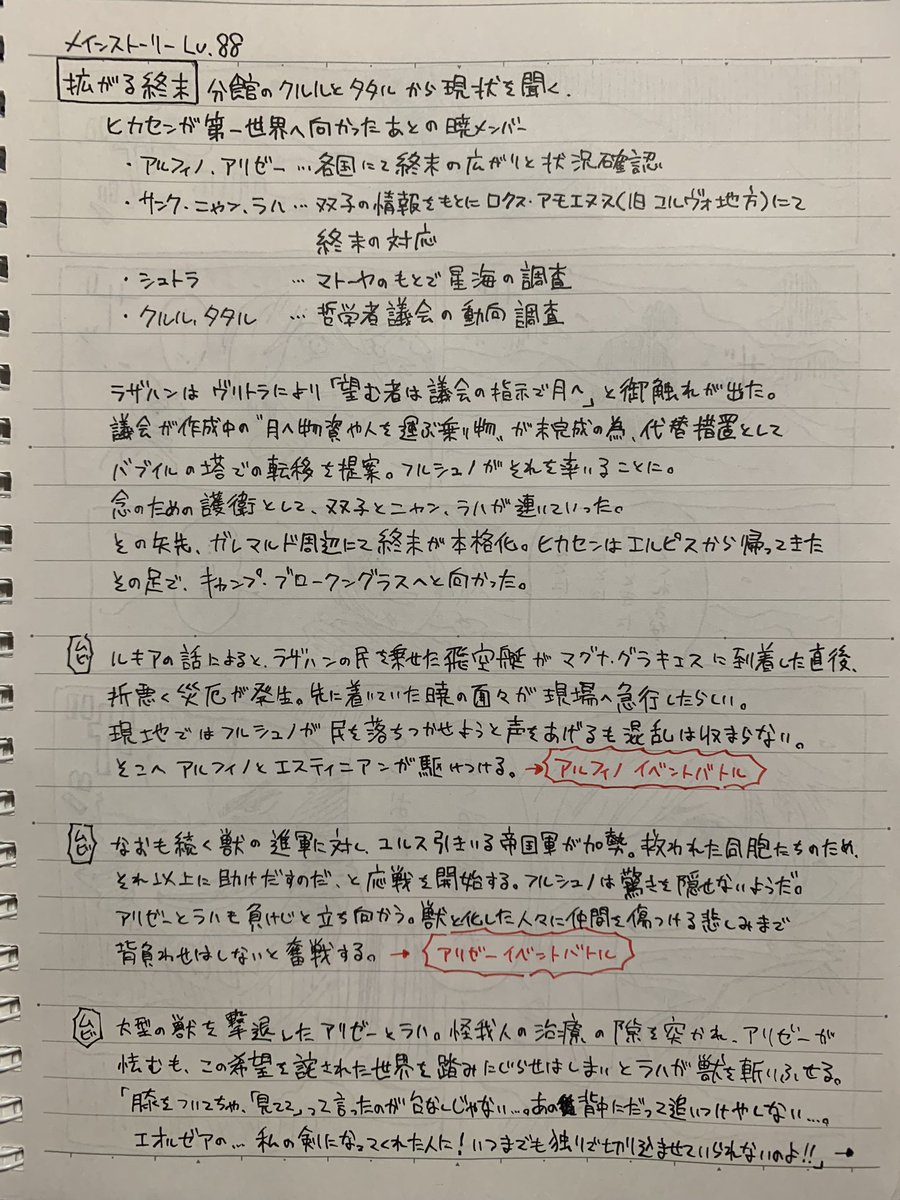 メインストーリー Lv.88
拡がる終末 分館のクルルとタタルから現状を聞く.
ヒカセンが第一世界へ向かったあとの暁メンバー
・アルフィノ、アリゼー … 各国にて終末の広がりと状況確認
・サンク・ニャン、ラハ … 双子の情報をもとにロクス・アモエヌス(旧コルヴォ地方)にて
終末の対応
・シュトラ … マトーヤのもとで星海の調査
・クルル、タタル … 哲学者議会の動向調査
ラザハンはヴリトラにより「望む者は議会の指示で月へ」と御触れが出た。
議会が作成中の〝月へ物資や人を運ぶ乗り物〟が未完成の為、代替措置として
バブイルの塔での転移を提案。フルシュノがそれを率いることに。
念のための護衛として、双子とニャン、ラハが連いていった。
その矢先、ガレマルド周辺にて終末が本格化。ヒカセンはエルピスから帰ってきた
その足で、キャンプ・ブロークングラスへと向かった。
ム ルキアの話によると、ラザハンの民を乗せた飛空艇がマグナ・グラキエスに到着した直後、
折悪く災厄が発生。先に着いていた暁の面々が現場へ急行したらしい。
現地ではフルシュノが民を落ちつかせようと声をあげるも混乱は収まらない。
そこへアルフィノとエスティニアンが駆けつける。→ アルフィノ イベントバトル
ム なおも続く獣の進軍に対し、ユルス引きいる帝国軍が加勢。救われた同胞たちのため、
それ以上に助けだすのだ、と応戦を開始する。フルシュノは驚きを隠せないようだ。
アリゼーとラハも負けじと立ち向かう。獣と化した人々に仲間を傷つける悲しみまで
背負わせはしないと奮戦する。→ アリゼーイベントバトル
ム 大型の獣を撃退したアリゼーとラハ。怪我人の治療の隙を突かれ、アリゼーが
怯むも、この希望を託された世界を踏みにじらせはしまいとラハが獣を斬りふせる。
「膝をついてちゃ、「見てて」って言ったのが台なしじゃない…。あの背中にだって追いつけやしない…。
エオルゼアの… 私の剣になってくれた人に!いつまでも独りで切り込ませていられないのよ!!」→